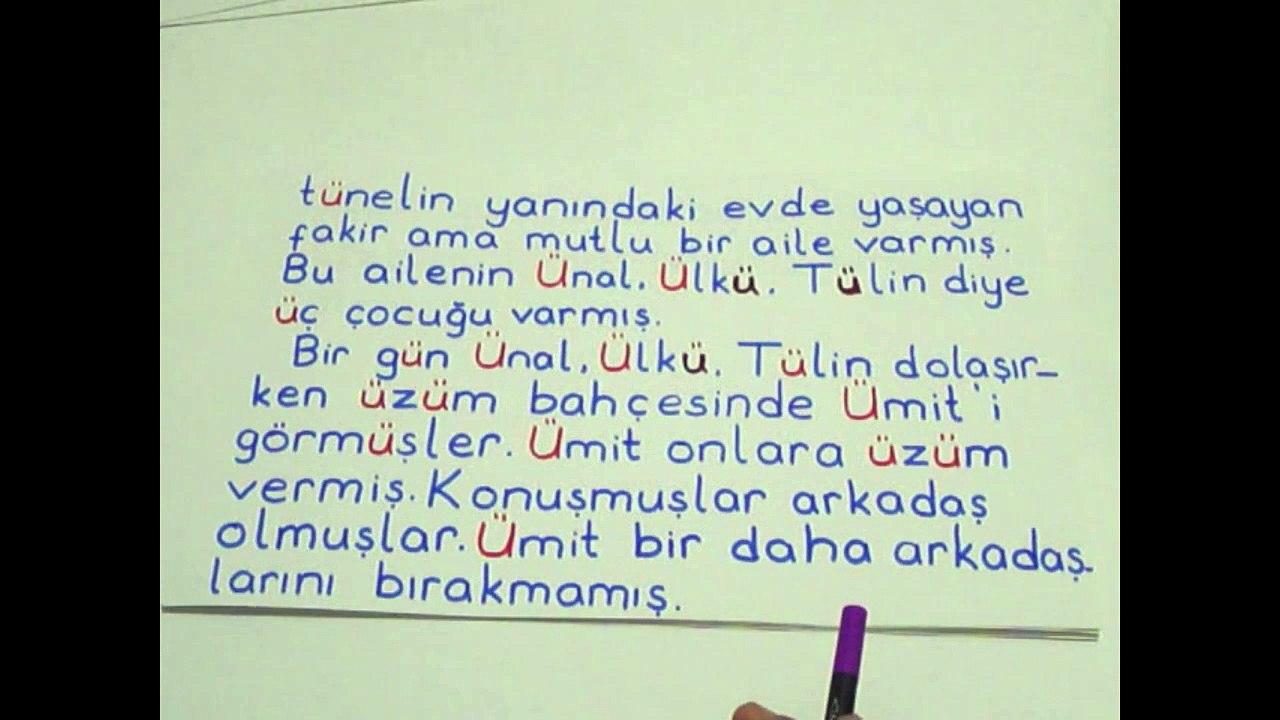 tünelin yanındaki evde yaşayan
fakir ama mutlu bir aile varmış.
Bu ailenin Ünal, Ülkü, Tülin diye
üç çocuğu varmış.
Bir gün Ünal, Ülkü, Tülin dolaşır-
ken üzüm bahçesinde Ümit'i
görmüşler. Ümit onlara üzüm
vermiş. Konuşmuşlar arkadaş
olmuşlar. Ümit bir daha arkadaş-
larını bırakmamış.